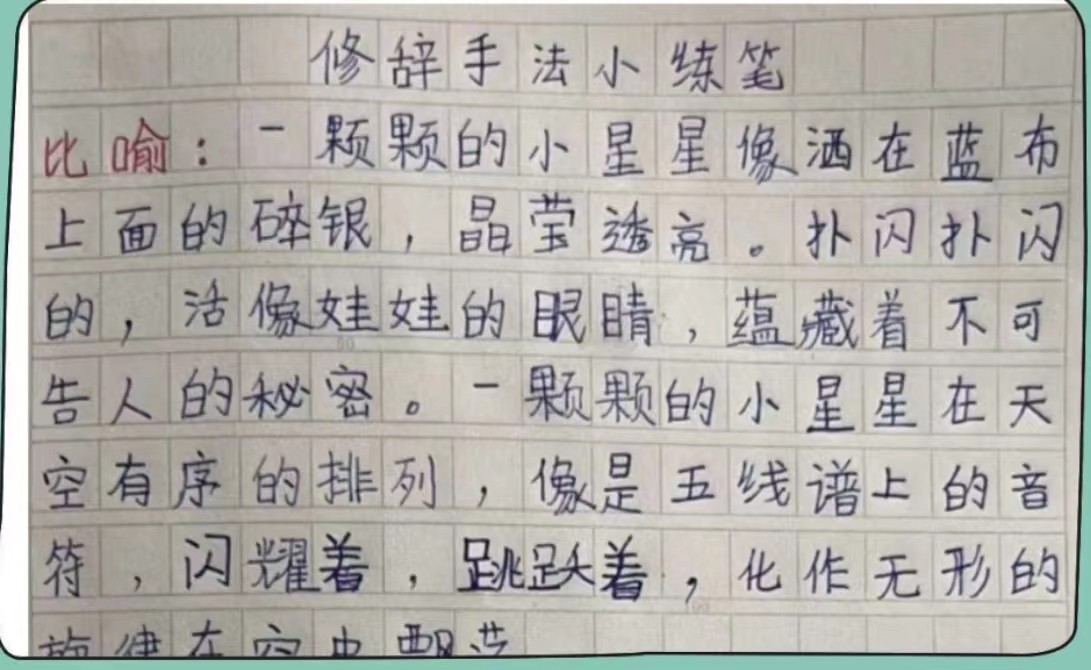 修辞手法小练笔
比喻：一颗颗的小星星像洒在蓝布
上面的碎银，晶莹透亮。扑闪扑闪
的，活像娃娃的眼睛，蕴藏着不可
告人的秘密。一颗颗的小星星在天
空有序的排列，像是五线谱上的音
符，闪耀着，跳跃着，化作无形的
旋律在空中飘荡